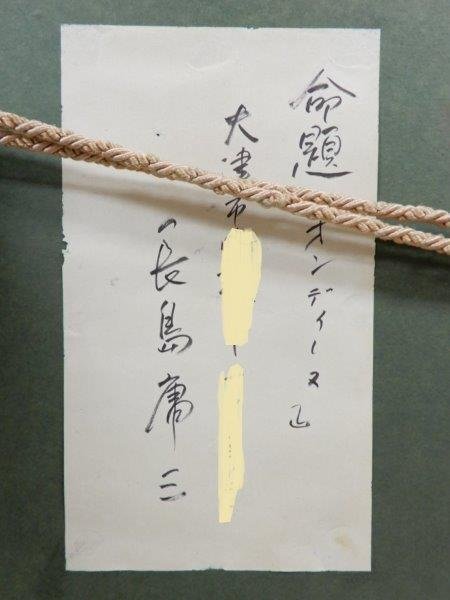 命題 オンディーヌ』
大津市
長島庸三